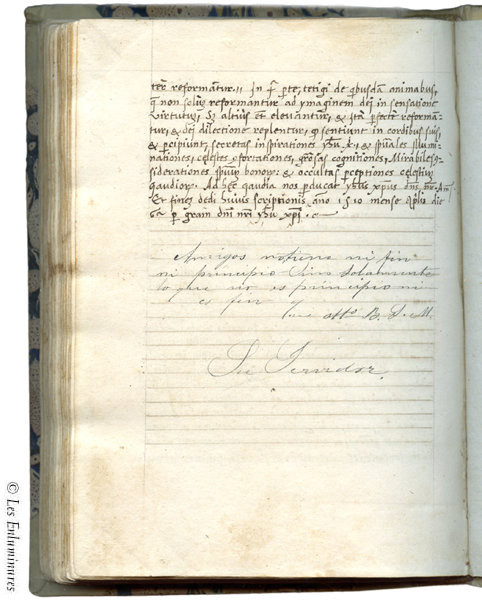 ter reformātur. In q̄ pte, tetigi de qbusdā animabus,
q non solūm reformantur ad ymaginem dei in sensatione
virtutuȝ, sȝ altius et eleuantur, & ita pfecte reforma-
tur, & dei dilectione replentur, q sentiunt in cordibus suis,
& pcipiunt secretas inspirationes yhu x̄, & spūales illumi-
nationes, celestes exortationes, grosas cognitiones, Mirabiles 9-
siderationes spuūm bonoꝝ & occultas pceptiones celestium
gaudioꝝ. Ad hec gaudia nos pducat yhus xpūs dns nr. Am
Et finem dedi huius scriptionis ano 1510 mense die
6a p gram dni nri yhu xpi.
Amigos notiene ni fin
ni principio sino solamente
lo que no es principio ni
es fin y
B. S. M.
Su Servidor
© Les Enluminures